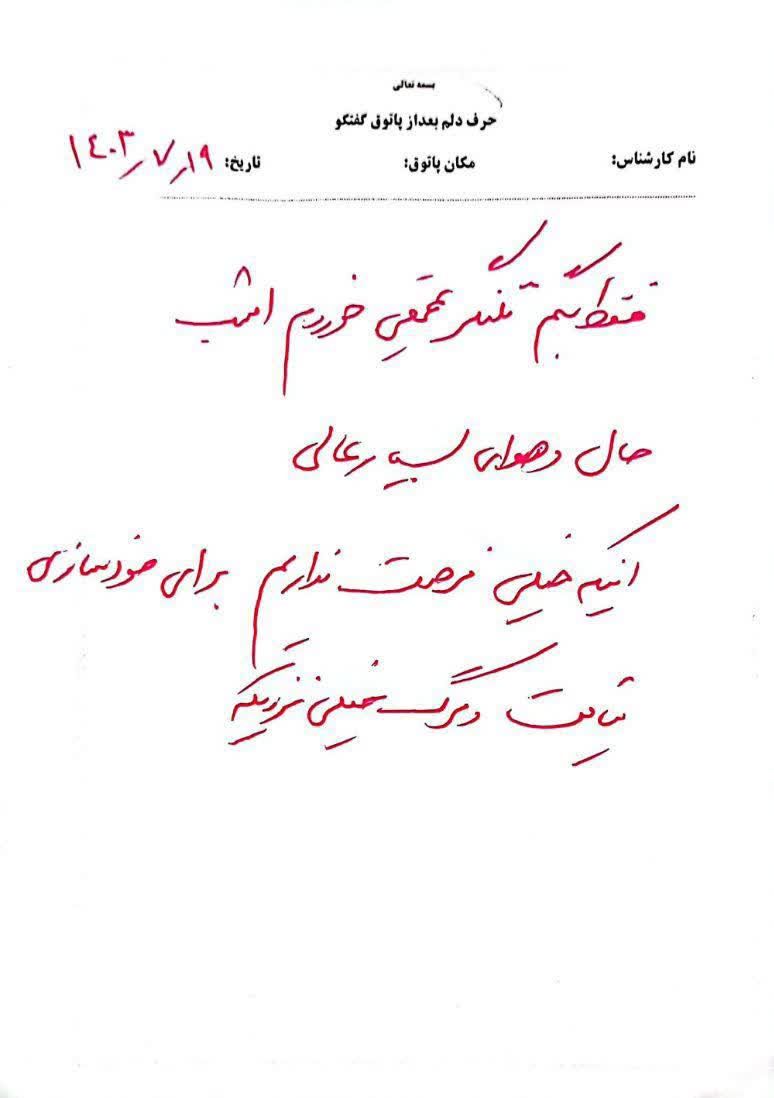 بسمه تعالی
حرف دلم بعد از پاتوق گفتگو
نام کارشناس: مکان پاتوق: تاریخ: ۱۴۰۳/۷/۱۹
فقط بگم تلنگر عمیقی خوردم امشب
حال و هوای بسیار عالی
اینکه خیلی فرصت نداریم برای خودسازی
قیامت و مرگ خیلی نزدیکه